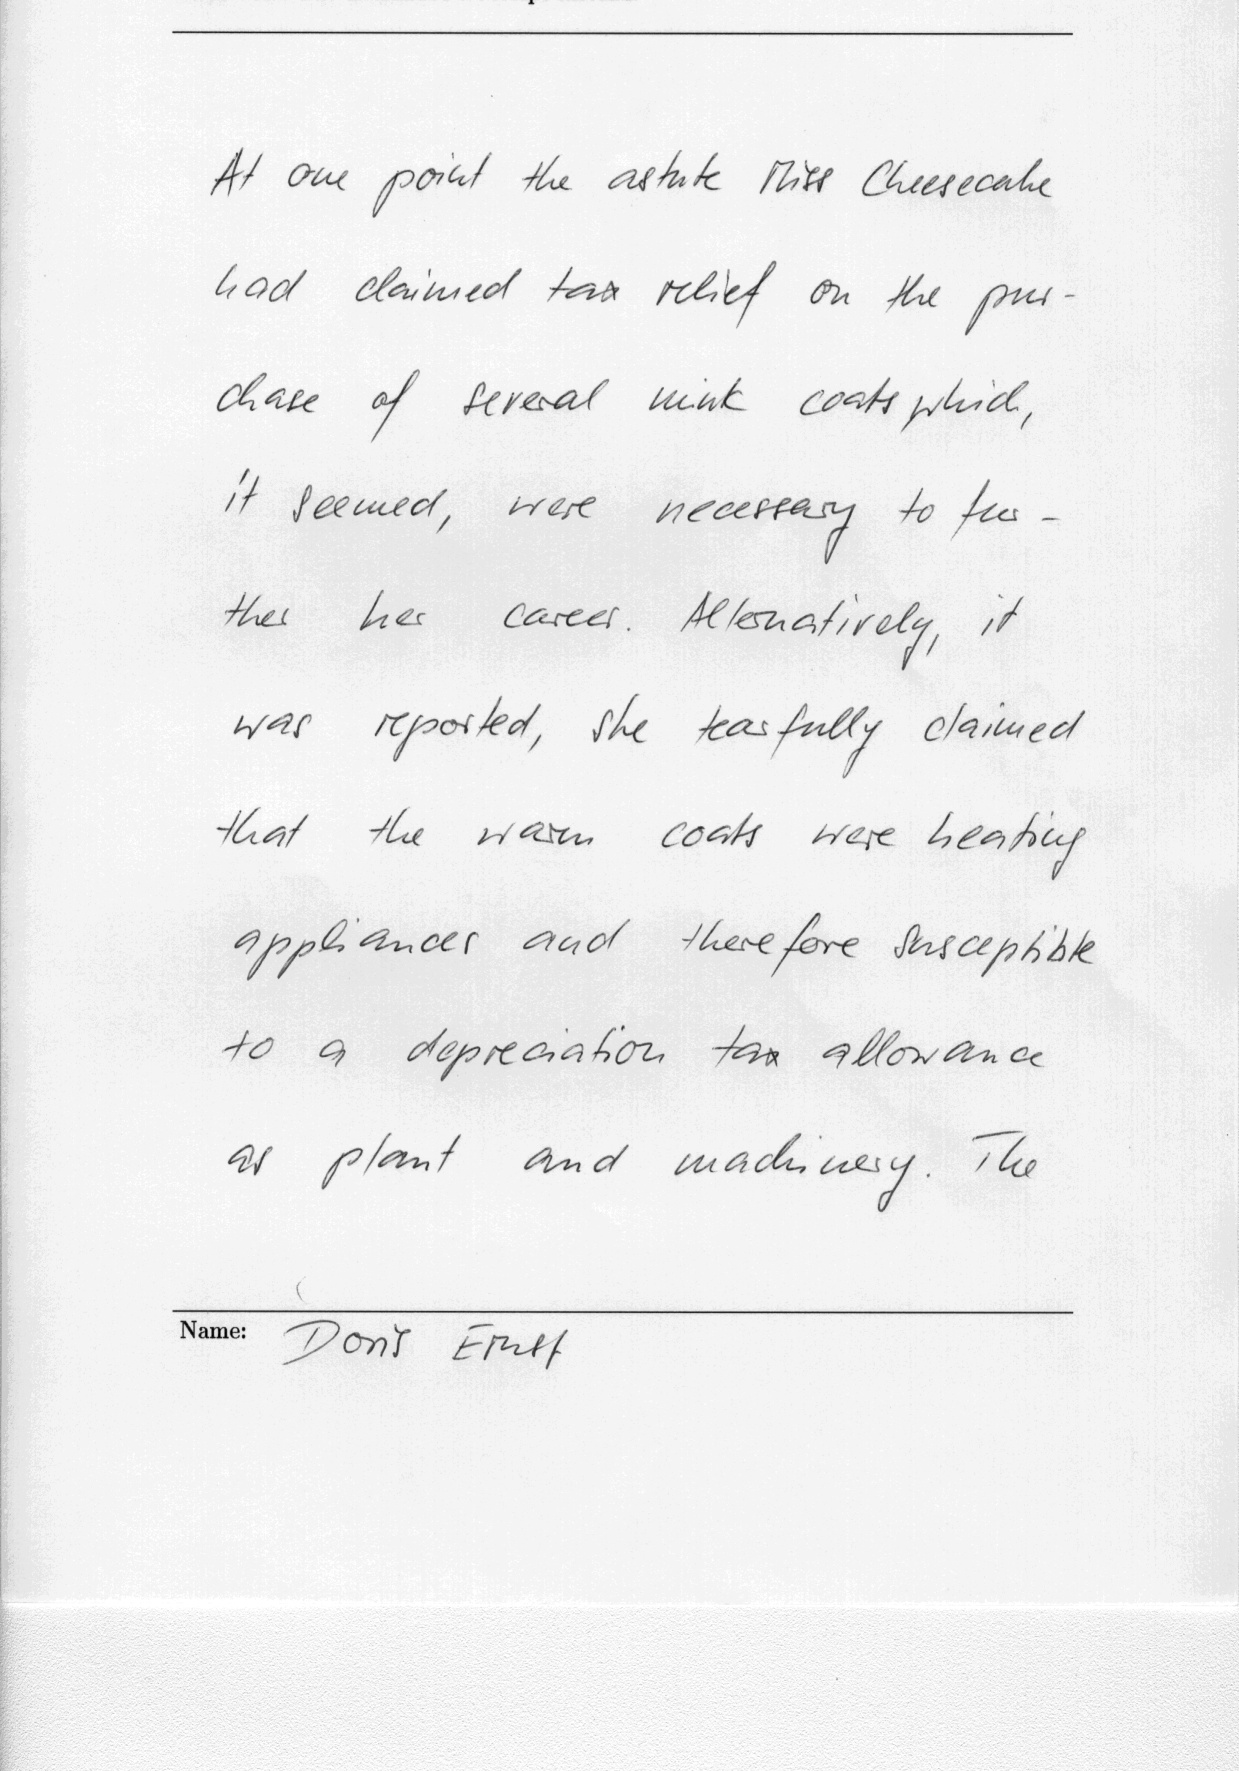 At one point the astute Miss Cheesecake
had claimed tax relief on the pur-
chase of several mink coats which,
it seemed, were necessary to fur-
ther her career. Alternatively, it
was reported, she tearfully claimed
that the warm coats were heating
appliances and therefore susceptible
to a depreciation tax allowance
as plant and machinery. The
Name: Doris Ernst